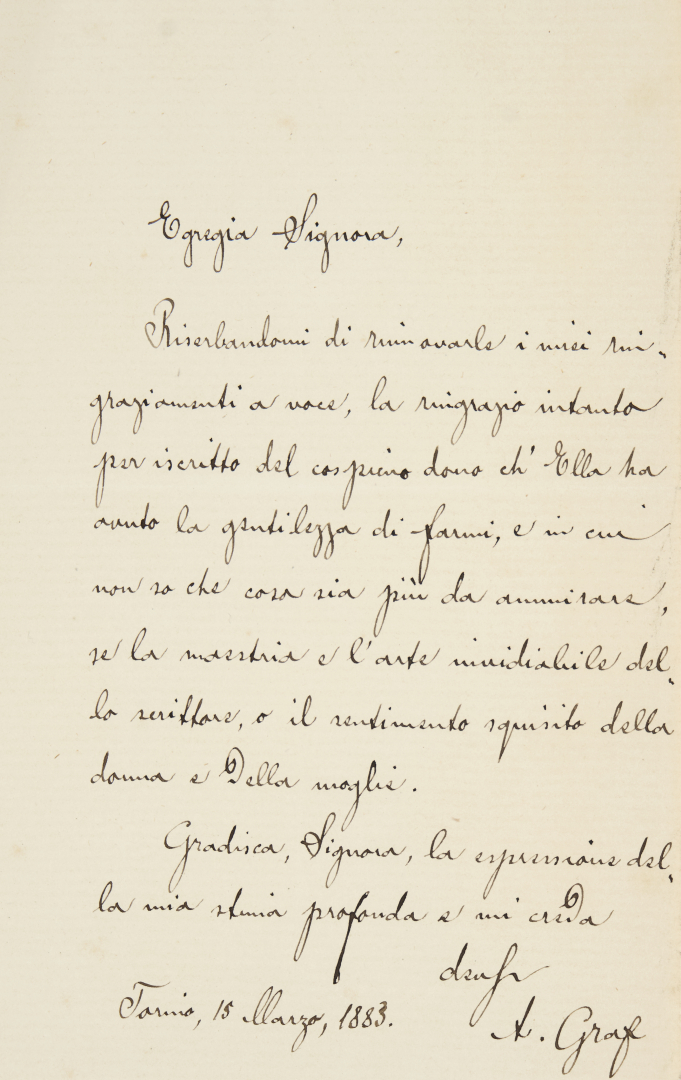 Egregia Signora,
Riserbandomi di rinnovarle i miei rin-
graziamenti a voce, la ringrazio intanto
per iscritto del cospicuo dono ch' Ella ha
avuto la gentilezza di farmi, e in cui
non so che cosa sia più da ammirare,
se la maestria e l'arte invidiabile del-
lo scrittore, o il sentimento squisito della
donna e Della moglie.
Gradisca, Signora, la espressione del-
la mia stima profonda e mi creda
Torino, 15 Marzo, 1883.
A. Graf